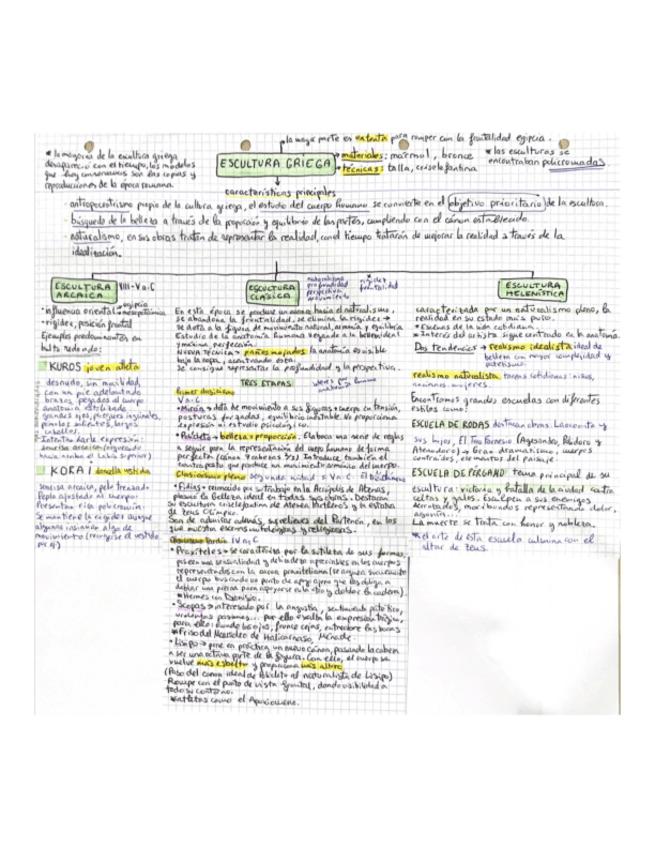 la mayor parte en exenta para romper con la frontalidad egipcia.
* la mayoría de la escultura griega
desapareció con el tiempo, los modelos
que hoy conservamos son las copias y
reproducciones de la época romana.
ESCULTURA GRIEGA
→ materiales: marmol, bronce
→ técnicas: talla, criselefantina
* las esculturas se
encontraban policromadas.
características principales
- antropocentrismo propio de la cultura griega, el estudio del cuerpo humano se convierte en el objetivo prioritario de la escultura.
- búsqueda de la belleza a través de la proporción y equilibrio de las partes, cumpliendo con el cánon establecido.
- naturalismo, en sus obras tratan de representar la realidad, con el tiempo tratarán de mejorar la realidad a través de la
idealización.
ESCULTURA
ARCAICA
VIII-V a.C
· influencia oriental egipcia
mesopotámica
· rigidez, posición frontal
Ejemplos predominantes en
bulto redondo:
KUROS joven atleta
desnudo, sin movilidad,
con un pie adelantado
brazos pegados al cuerpo
anatomía estilizada
grandes ojos, pliegues inguinales,
pómulos salientes, largos
cabellos.
Intentan darle expresión:
sonrisa arcaica
KORAI doncella vestida
sonrisa arcaica, pelo trenzado
Peplo ajustado al cuerpo.
Presentan rica policromía.
Se mantiene la rigidez aunque
algunas insinúan algo de
movimiento (recogerse el vestido
por ej)
ESCULTURA
CLÁSICA
naturalismo
profundidad
perspectiva
movimiento
rigidez
frontalidad
En esta época se produce un avance hacia el naturalismo,
se abandona la frontalidad, se elimina la rigidez →
Se dota a la figura de movimiento natural, armonía y equilibrio
Estudio de la anatomía humana llegando a la serenidad
y máxima perfección.
NUEVA TÉCNICA → paños mojados la anatomía es visible
bajo la ropa, acentuando ésta.
Se consigue representar la profundidad y la perspectiva.
TRES ETAPAS:
Primer clasicismo
V a.C
· Mirón → dota de movimiento a sus figuras → cuerpo en tensión,
posturas forzadas, equilibrio inestable. No proporciona
expresión ni estudio psicológico.
· Policleto → belleza = proporción. Elabora una serie de reglas
a seguir para la representación del cuerpo humano de forma
perfecta (canon 7 cabezas 1/2) Introduce también el
contraposto que produce un movimiento armónico del cuerpo.
Clasicismo pleno segunda mitad s. V a.C
· Fidias → reconocido por su trabajo en la Acrópolis de Atenas,
plasma la Belleza ideal en todas sus obras. Destacan
su escultura criselefantina de Atenea Parthenos y la estatua
de Zeus Olímpico.
Son de admirar además, sus relieves del Partenón, en los
que muestra escenas mitológicas y religiosas.
Clasicismo tardío IV a.C
· Praxiteles → se caracteriza por la sutileza de sus formas,
poseen una sensualidad y delicadeza apreciables en los cuerpos
representados con la curva praxiteliana (se arquea sucesivamente
el cuerpo buscando un punto de apoyo ajeno que les obliga a
doblar una pierna para apoyarse en la otra y doblar la cadera).
* Hermes con Dionisio.
· Scopas → interesado por la angustia, sentimiento patético,
violentas pasiones... por ello exalta la expresión trágica,
para ello: hunde los ojos, frunce cejas, entreabre las bocas
* Friso del Mausoleo de Halicarnaso, Ménade.
· Lisipo → pone en práctica un nuevo canon, pasando la cabeza
a ser una octava parte de la figura. Con ello, el cuerpo se
vuelve más esbelto y proporciona más altura
(Paso del canon ideal de Policleto al naturalista de Lisipo)
Rompe con el punto de vista frontal, dando visibilidad a
todo su contorno.
* atletas como el Apoxiomeno.
ESCULTURA
HELENÍSTICA
caracterizada por un naturalismo pleno, la
realidad en su estado más puro.
* Escenas de la vida cotidiana.
* interés del artista sigue centrado en la anatomía.
Dos tendencias → realismo idealista ideal de
belleza con mayor complejidad y
patetismo.
realismo naturalista temas cotidianos: niños,
ancianos, mujeres.
Encontramos grandes escuelas con diferentes
estilos como:
ESCUELA DE RODAS destacan obras: Laocoonte y
sus hijos, El Toro Farnesio (Agesandro, Polidoro y
Atenodoro) → Gran dramatismo, cuerpos
contraídos, elementos del paisaje.
ESCUELA DE PÉRGAMO tema principal de su
escultura: victoria y batalla de la ciudad contra
celtas y galos. Esculpen a sus enemigos
derrotados, moribundos representando dolor,
agonía...
La muerte se trata con honor y nobleza.
* el arte de esta escuela culmina con el
altar de Zeus.